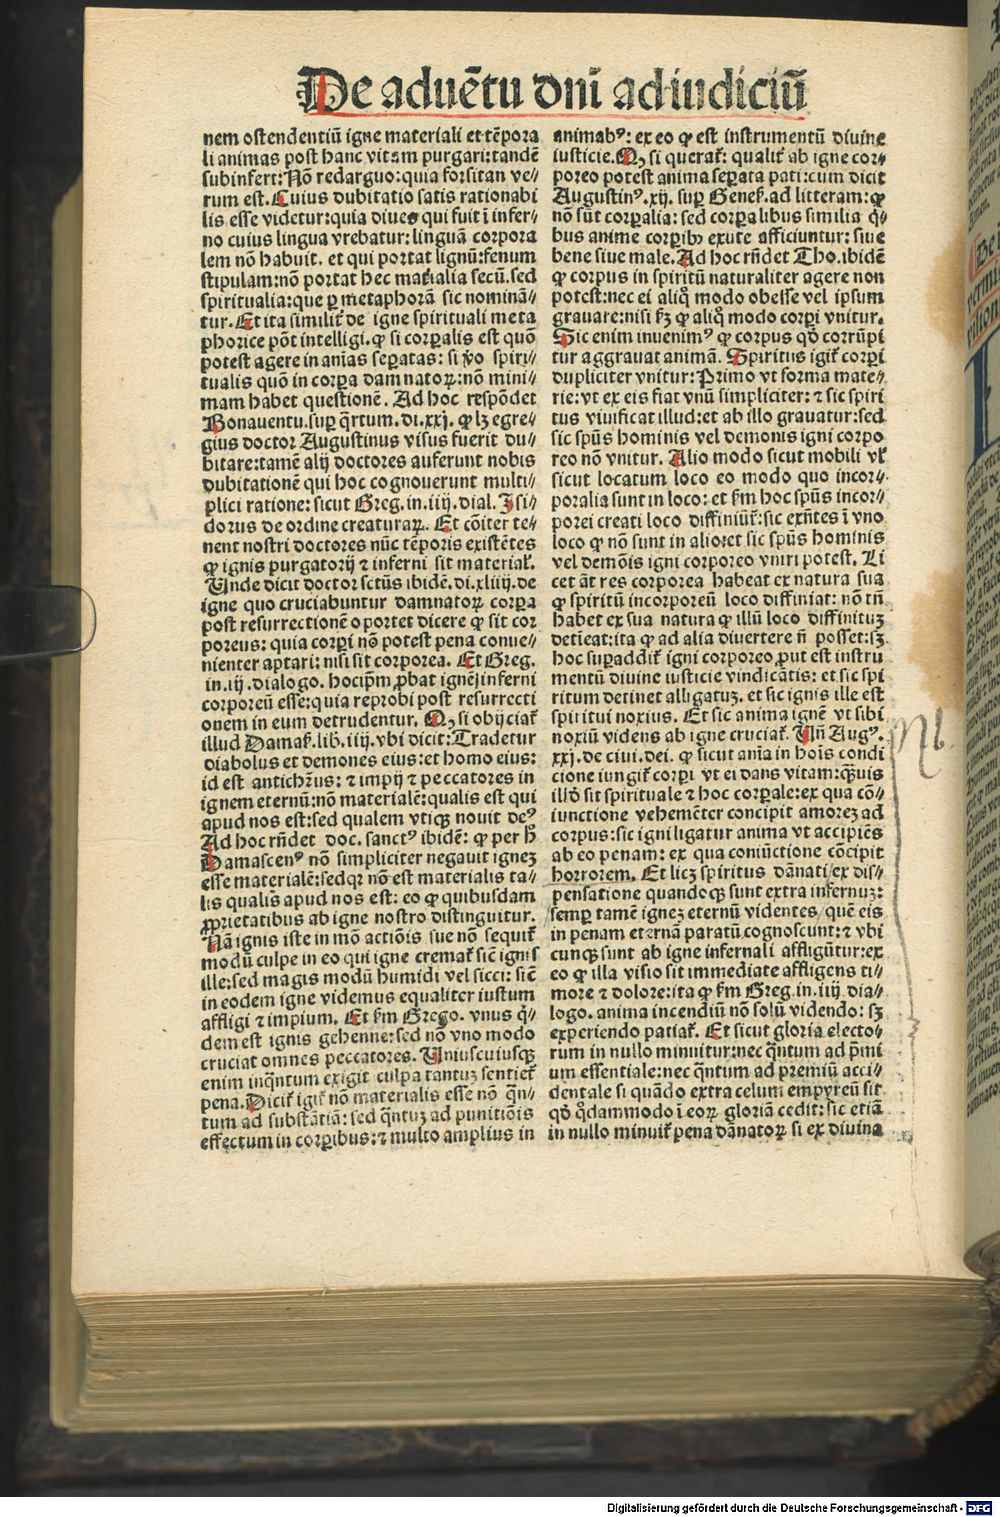 De aduẽtu dñi ad iudiciũ
nem ostendentiũ igne materiali et tẽpora
li animas post hanc vitam purgari: tandẽ
subinfert: Nõ redarguo: quia forsitan ve⸗
rum est. Cuius dubitatio satis rationabi
lis esse videtur: quia diues qui fuit ĩ infer⸗
no cuius lingua vrebatur: linguã corpora
lem nõ habuit. et qui portat lignũ: fenum
stipulam: nõ portat hec matialia secũ. sed
spiritualia: que ꝑ metaphorã sic nominã⸗
tur. Et ita similiť de igne spirituali meta
phorice põt intelligi. ꝙ si corꝑalis est quõ
potest agere in aĩas seꝑatas: si ṽo spiri⸗
tualis quõ in corꝑa damnatoꝝ: nõ mini⸗
mam habet questionẽ. Ad hoc respõdet
Bonauentu. suꝑ q̃rtum. di. xxj. ꝙ lꝫ egre⸗
gius doctor Augustinus visus fuerit du⸗
bitare: tamẽ alij doctores auferunt nobis
dubitationẽ qui hoc cognouerunt multi⸗
plici ratione: sicut Greg. in. iiij. dial. Isi⸗
dorus de ordine creaturaꝝ. Et cõiter te⸗
nent nostri doctores nũc tẽporis existẽtes
ꝙ ignis purgatorij ⁊ inferni sit materiaľ.
Unde dicit doctor sctũs ibidẽ. di. xliiij. de
igne quo cruciabuntur damnatoꝝ corꝑa
post resurrectionẽ oportet dicere ꝙ sit cor
poreus: quia corꝑi nõ potest pena conue⸗
nienter aptari: nisi sit corporea. Et Greg.
in. iij. dialogo. hocip̃m ꝓbat ignẽ inferni
corporeũ esse: quia reprobi post resurrecti
onem in eum detrudentur. Qꝫ si obijciať
illud Damas. lib. iiij. vbi dicit: Tradetur
diabolus et demones eius: et homo eius:
id est antichr̃us: ⁊ impij ⁊ peccatores in
ignem eternũ: nõ materialẽ: qualis est qui
apud nos est: sed qualem vtiqꝫ nouit deꝰ
Ad hoc rñdet doc. sanctꝰ ibidẽ: ꝙ per h̃
Damascenꝰ nõ simpliciter negauit igneꝫ
esse materialẽ: sed qꝛ nõ est materialis ta⸗
lis qualis apud nos est: eo ꝙ quibusdam
ꝓprietatibus ab igne nostro distinguitur.
Nã ignis iste in mõ actiõis sue nõ sequiť
modũ culpe in eo qui igne cremať sicẽ ignis
ille: sed magis modũ humidi vel sicci: sicẽ
in eodem igne videmus equaliter iustum
affligi ⁊ impium. Et ẜm Grego. vnus q̃⸗
dem est ignis gehenne: sed nõ vno modo
cruciat omnes peccatores. Uniuscuiusqꝫ
enim inq̃ntum exigit culpa tantuꝫ sentieť
pena. Diciť igiť nõ materialis esse nõ q̃n⸗
tum ad substãtiã: sed q̃ntuꝫ ad punitiõis
effectum in corꝑibus: ⁊ multo amplius in
animabꝰ: ex eo ꝙ est instrumentũ diuine
iusticie. Qꝫ si querať: qualiť ab igne cor⸗
poreo potest anima seꝑata pati: cum dicit
Augustinꝰ. xij. suꝑ Genes. ad litteram: ꝙ
nõ sũt corꝑalia: sed corꝑalibus similia q̃⸗
bus anime corꝑibꝫ exute afficiuntur: siue
bene siue male. Ad hoc rñdet Tho. ibidẽ
ꝙ corpus in spiritũ naturaliter agere non
potest: nec ei aliq̃ modo obesse vel ipsum
grauare: nisi ẜꝫ ꝙ aliq̃ modo corꝑi vnitur.
Sic enim inuenimꝰ ꝙ corpus qď corrũpi
tur aggrauat animã. Spiritus igiť corꝑi
dupliciter vnitur: Primo vt forma mate⸗
rie: vt ex eis fiat vnũ simpliciter: ⁊ sic spiri
tus viuificat illud: et ab illo grauatur: sed
sic spũs hominis vel demonis igni corpo
reo nõ vnitur. Alio modo sicut mobili vľ
sicut locatum loco eo modo quo incor⸗
poralia sunt in loco: et ẜm hoc spũs incor⸗
porei creati loco diffiniũť: sic exñtes ĩ vno
loco ꝙ nõ sunt in alio: et sic spũs hominis
vel demõis igni corporeo vniri potest. Li
cet ãt res corporea habeat ex natura sua
ꝙ spiritũ incorporeũ loco diffiniat: nõ tñ
habet ex sua natura ꝙ illũ loco diffinituꝫ
detĩeat: ita ꝙ ad alia diuertere ñ posset: sꝫ
hoc suꝑaddiť igni corporeo ꝓut est instru
mentũ diuine iusticie vindicãtis: et sic spi
ritum detinet alligatuꝫ. et sic ignis ille est
spiritui noxius. Et sic anima ignẽ vt sibi
noxiũ videns ab igne cruciať. Uñ Augꝰ.
xxj. de ciui. dei. ꝙ sicut aĩa in hoĩs condi
cione iungiť corꝑi vt ei dans vitam: q̃uis
illď sit spirituale ⁊ hoc corꝑale: ex qua cõ⸗
iunctione vehemẽter concipit amoreꝫ ad
corpus: sic igni ligatur anima vt accipiẽs
ab eo penam: ex qua coniũctione cõcipit
horrorem. Et licꝫ spiritus dãnati ex dis⸗
pensatione quandoqꝫ sunt extra infernuꝫ:
semꝑ tamẽ igneꝫ eternũ videntes quẽ eis
in penam eternã paratũ cognoscunt: ⁊ vbi
cunqꝫ sunt ab igne infernali affligũtur: ex
eo ꝙ illa visio sit immediate affligens ti⸗
more ⁊ dolore: ita ꝙ ẜm Greg. in. iiij. dia⸗
logo. anima incendiũ nõ solũ videndo: sꝫ
experiendo patiať. Et sicut gloria electo⸗
rum in nullo minuitur: nec q̃ntum ad p̃mi
um essentiale: nec q̃ntum ad premiũ acci⸗
dentale si quãdo extra celum empyreũ sit
qď q̃dammodo ĩ eoꝝ gloriã cedit: sic etiã
in nullo minuiť pena dãnatoꝝ si ex diuina
Nb.
Digitalisierung gefördert durch die Deutsche Forschungsgemeinschaft - DFG